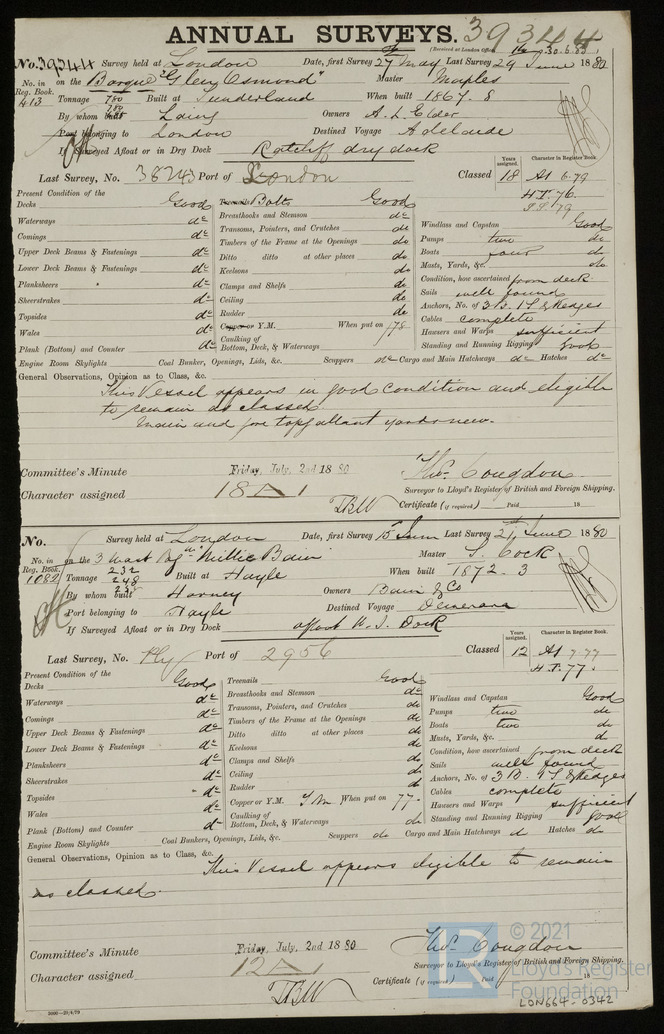 ANNUAL SURVEYS. 39344
(Received at London Office, 30.6.80)
No. 39344 Survey held at London Date, first Survey 27th May Last Survey 29 June 1880
No. in Reg. Book. 413 on the Barque "Glen Osmond" Master Maples
Tonnage 780 780 Built at Sunderland When built 1867. 8
By whom built Laing Owners A. L. Elder
Port belonging to London Destined Voyage Adelaide
If Surveyed Afloat or in Dry Dock Ratcliff dry dock
Last Survey, No. 38243 Port of London Classed Years assigned. 18 Character in Register Book. A1 6.79
H.T. 76.
S.S. 79
Present Condition of the
Decks Good
Waterways do
Comings do
Upper Deck Beams & Fastenings do
Lower Deck Beams & Fastenings do
Planksheers do
Sheerstrakes do
Topsides do
Wales do
Plank (Bottom) and Counter do
Treenails Bolts Good
Breasthooks and Stemson do
Transoms, Pointers, and Crutches do
Timbers of the Frame at the Openings do
Ditto ditto at other places do
Keelsons do
Clamps and Shelfs do
Ceiling do
Rudder do
Copper or Y.M. When put on 78
Caulking of Bottom, Deck, & Waterways
Windlass and Capstan Good
Pumps two do
Boats four do
Masts, Yards, &c. do
Condition, how ascertained from deck
Sails well found
Anchors, No. of 3 B. 1 S. & Kedges
Cables complete
Hawsers and Warps sufficient
Standing and Running Rigging Good
Engine Room Skylights Coal Bunker, Openings, Lids, &c. Scuppers do Cargo and Main Hatchways do Hatches do
General Observations, Opinion as to Class, &c.
This Vessel appears in good condition and eligible
to remain as classed.
Main and fore topgallant yards new.
Committee's Minute Friday, July. 2nd 1880 Thos. Congdon
Character assigned 18 A 1 Surveyor to Lloyd's Register of British and Foreign Shipping.
TBW Certificate (if required) Paid 18
No. Survey held at London Date, first Survey 15 June Last Survey 21st June 1880
No. in Reg. Book. 1082 on the 3 mast Bgn "Millie Bain" Master Cock
Tonnage 232 248 Built at Hayle When built 1872. 3
By whom built Harvey Owners Bain & Co
Port belonging to Hayle Destined Voyage Demerara
If Surveyed Afloat or in Dry Dock afloat W. I. Dock
Last Survey, No. Ply Port of 2956 Classed Years assigned. 12 Character in Register Book. A1 7.77
H.T. 77.
Present Condition of the
Decks Good
Waterways do
Comings do
Upper Deck Beams & Fastenings do
Lower Deck Beams & Fastenings do
Planksheers do
Sheerstrakes do
Topsides do
Wales do
Plank (Bottom) and Counter do
Treenails Good
Breasthooks and Stemson do
Transoms, Pointers, and Crutches do
Timbers of the Frame at the Openings do
Ditto ditto at other places do
Keelsons do
Clamps and Shelfs do
Ceiling do
Rudder do
Copper or Y.M. Y M. When put on 77.
Caulking of Bottom, Deck, & Waterways do
Windlass and Capstan Good
Pumps two do
Boats two do
Masts, Yards, &c. do
Condition, how ascertained from deck
Sails well found
Anchors, No. of 3 B. 1 S. & Kedges
Cables complete
Hawsers and Warps sufficient
Standing and Running Rigging Good
Engine Room Skylights Coal Bunkers, Openings, Lids, &c. Scuppers do Cargo and Main Hatchways do Hatches do
General Observations, Opinion as to Class, &c.
This Vessel appears eligible to remain
as classed.
Committee's Minute Friday, July. 2nd 1880 Thos. Congdon
Character assigned 12 A 1 Surveyor to Lloyd's Register of British and Foreign Shipping.
TBW Certificate (if required) Paid
© 2021
Lloyd's Register
Foundation
LON664-0342